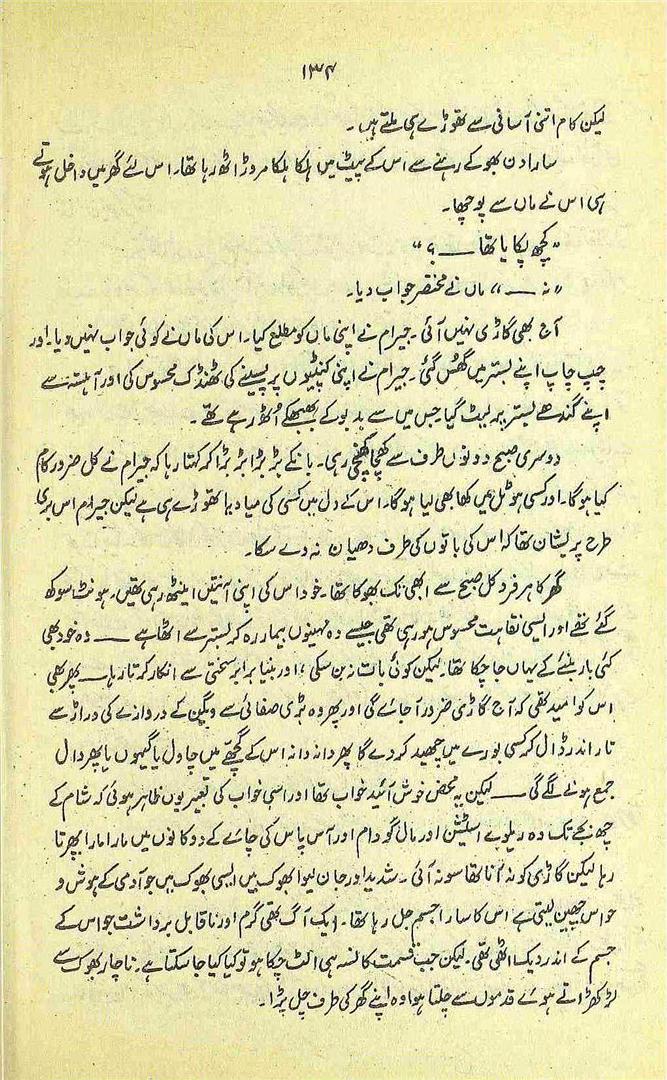 ۱۳۴
لیکن کام اتنی آسانی سے تھوڑے ہی ملتے ہیں۔
سارا دن بھوکے رہنے سے اس کے پیٹ میں ہلکا ہلکا مروڑ اٹھ رہا تھا۔ اس لئے گھر میں داخل ہوتے
ہی اس نے ماں سے پوچھا۔
"کچھ پکایا تھا ــــ؟"
"نہ ــــ" ماں نے مختصر جواب دیا۔
آج بھی گاڑی نہیں آئی۔ جیرام نے اپنی ماں کو مطلع کیا۔ اس کی ماں نے کوئی جواب نہیں دیا۔ اور
چپ چاپ اپنے بستر میں گھس گئی۔ جیرام نے اپنی کنپٹیوں پر پسینے کی ٹھنڈک محسوس کی اور آہستہ سے
اپنے گندھے بستر پر لیٹ گیا۔ جس میں سے بدبو کے بھبھکے اُٹھ رہے تھے۔
دوسری صبح دونوں طرف سے کھچا کھچی رہی۔ بانکے بڑبڑا بڑبڑا کر کہتا رہا کہ جیرام نے کل ضرور کام
کیا ہوگا۔ اور کسی ہوٹل میں کھا بھی لیا ہوگا۔ اس کے دل میں کسی کی میا دیا تھوڑے ہی ہے لیکن جیرام اس بری
طرح پریشان تھا کہ اس کی باتوں کی طرف دھیان نہ دے سکا۔
گھر کا ہر فرد کل صبح سے ابھی تک بھوکا تھا۔ خود اس کی اپنی آنتیں اینٹھ رہی تھیں۔ ہونٹ سوکھ
گئے تھے اور ایسی نقاہت محسوس ہو رہی تھی جیسے وہ مہینوں بیمار رہ کر بستر سے اٹھا ہے ــــ وہ خود بھی
کئی بار بنئے کے یہاں جا چکا تھا۔ لیکن کوئی بات نہ بن سکی، اور بنیا برابر سختی سے انکار کرتا رہا ــ پھر بھی
اس کو امید تھی کہ آج گاڑی ضرور آ جائے گی اور پھر وہ بڑی صفائی سے ویگن کے دروازے کی دراڑ سے
تار اندر ڈال کر کسی بورے میں چھید کر دے گا پھر دانہ دانہ اس کے گمچھے میں چاول یا گیہوں یا پھر دال
جمع ہونے لگے گی ــــ لیکن یہ محض خوش آئند خواب تھا اور اسی خواب کی تعبیر یوں ظاہر ہوئی کہ شام کے
چھ بجے تک وہ ریلوے اسٹیشن اور مال گودام اور آس پاس کی چائے کے دوکانوں میں مارا مارا پھرتا
رہا لیکن گاڑی کو نہ آنا تھا سو نہ آئی۔ شدید اور جان لیوا بھوک ہیں ایسی بھوک ہیں جو آدمی کے ہوش و
حواس چھین لیتی ہے اس کا سارا جسم جل رہا تھا۔ ایک آگ تھی گرم اور ناقابل برداشت جو اس کے
جسم کے اندر دہک اٹھی تھی۔ لیکن جب قسمت کا نسہ ہی الٹ چکا ہو تو کیا کیا جا سکتا ہے۔ ناچار بھوک سے
لڑکھڑاتے ہوئے قدموں سے چلتا ہوا وہ اپنے گھر کی طرف چل پڑا۔